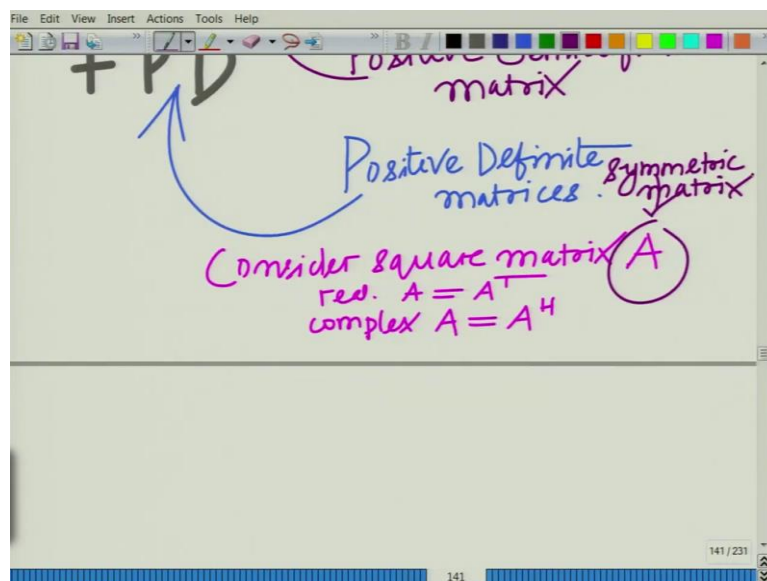 File Edit View Insert Actions Tools Help
B I
+ PD
matrix
Positive Definite
matrices.
symmetric
matrix
Consider square matrix A
real. A = A^T
complex A = A^H
141 / 231
141